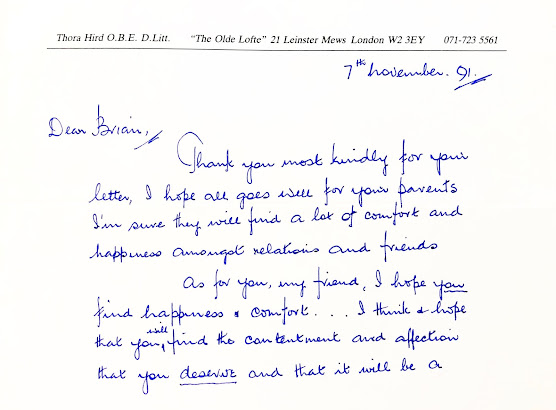 Thora Hird O.B.E. D.Litt. "The Olde Lofte" 21 Leinster Mews London W2 3EY 071-723 5561
7th November. 91.
Dear Brian,
Thank you most kindly for your
letter, I hope all goes well for your parents
I'm sure they will find a lot of comfort and
happiness amongst relations and friends
As for you, my friend, I hope you
find happiness & comfort. . . I think & hope
that you will find the contentment and affection
that you deserve and that it will be a